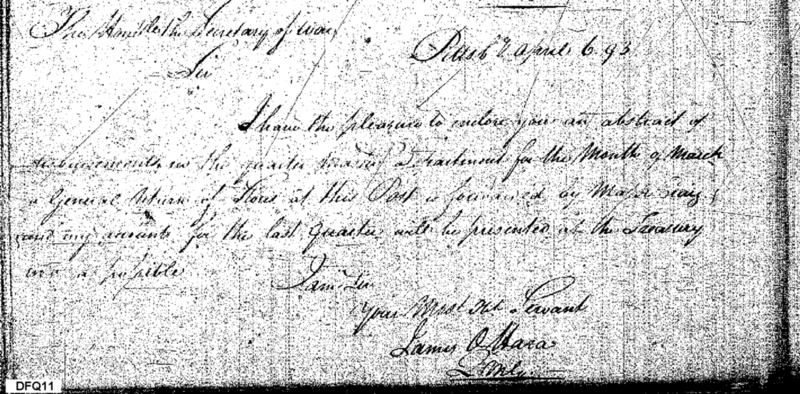 The Honble the Secretary of War
Pittsbg April 6. 93
Sir
I have the pleasure to enclose you an abstract of
disbursements in the quarter Masters department for the Month of March
a General Return of Stores at this Post is forwarded by Major Craig
and my accounts for the last Quarter will be presented at the Treasury
as possible
I am Sir
Your Most Obt Servant
James O Hara
DFQ11